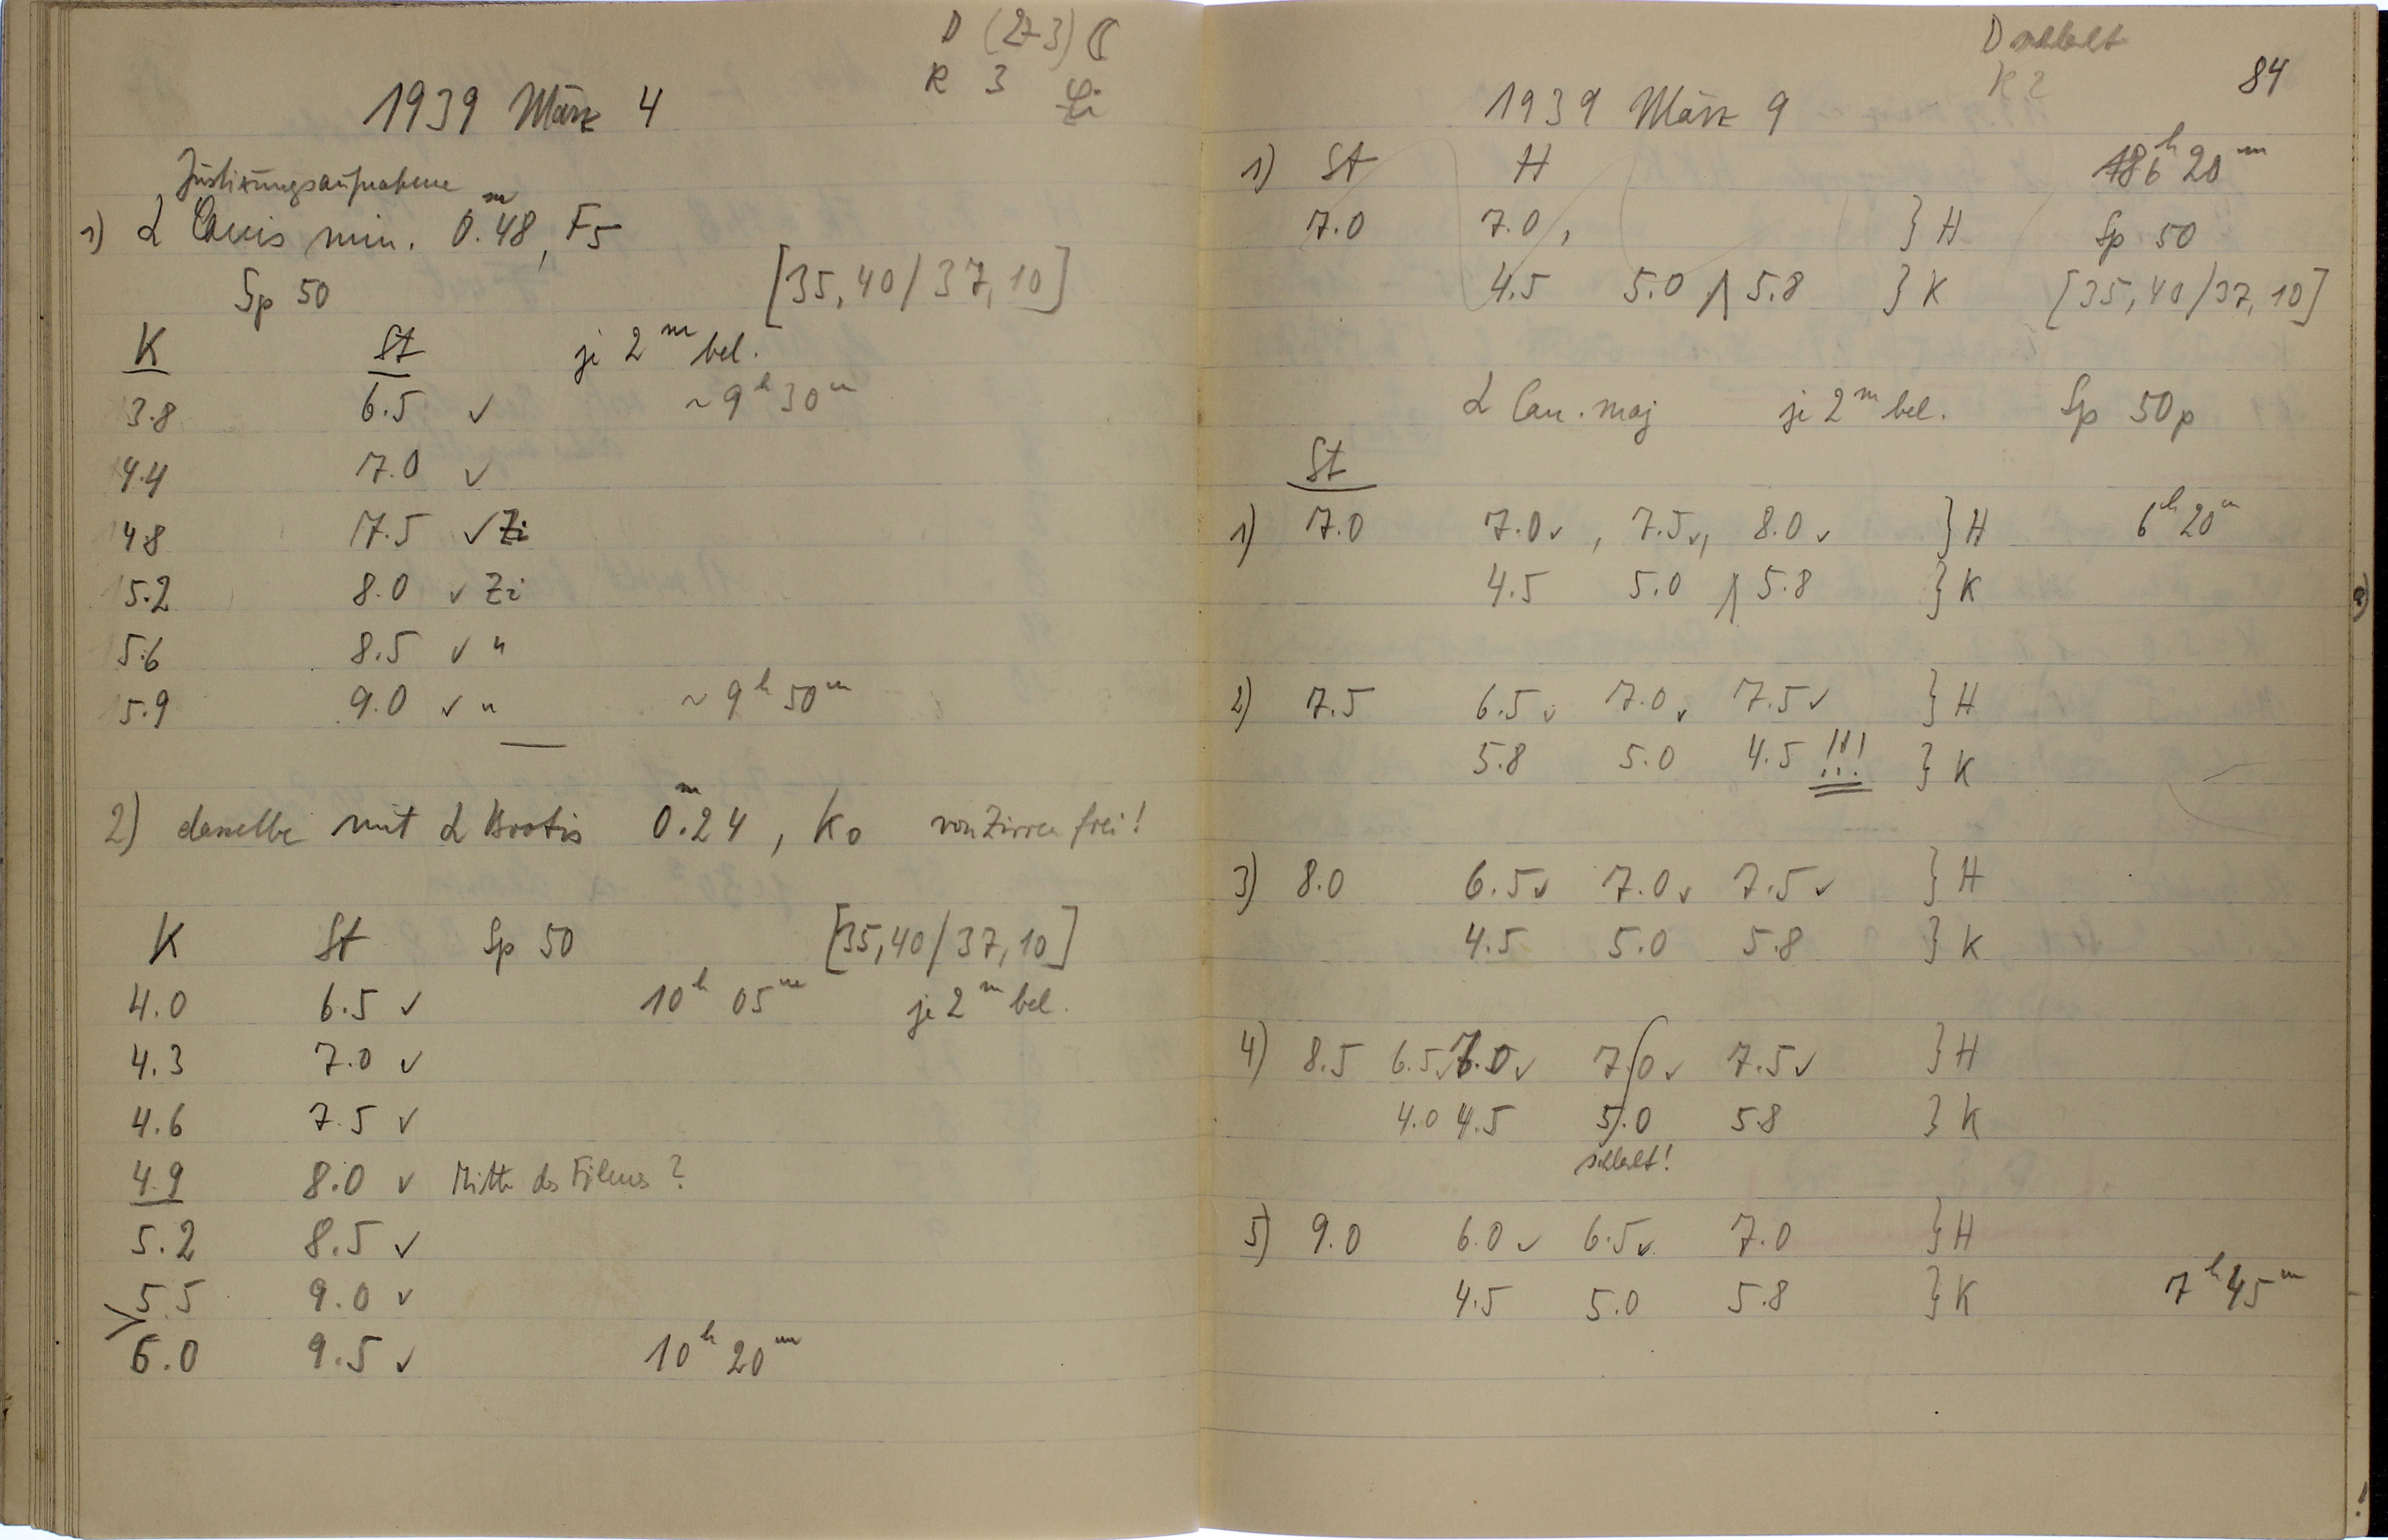 D (2-3) ☾
R 3 Zi
1939 März 4
Justirungsaufnahme
1) α Canis min. 0.ᵐ48, F5
Sp 50 [35,40/37,10]
K St je 2ᵐ bel.
3.8 6.5 ✓ ~9ʰ30ᵐ
4.4 7.0 ✓
4.8 7.5 ✓ Zi
5.2 8.0 ✓ Zi
5.6 8.5 ✓ "
5.9 9.0 ✓ " ~9ʰ50ᵐ
2) dasselbe mit α Bootis 0.ᵐ24, K0 von Zirren frei!
K St Sp 50 [35,40/37,10]
4.0 6.5 ✓ 10ʰ 05ᵐ je 2ᵐ bel.
4.3 7.0 ✓
4.6 7.5 ✓
4.9 8.0 ✓ Mitte des Films ?
5.2 8.5 ✓
5.5 9.0 ✓
6.0 9.5 ✓ 10ʰ 20ᵐ
D
R 2
84
1939 März 9
1) St H 6ʰ20ᵐ
7.0 7.0, } H Sp 50
4.5 5.0 5.8 } K [35,40/37,10]
α Can. maj je 2ᵐ bel. Sp 50p
St
1) 7.0 7.0✓, 7.5✓, 8.0✓ } H 6ʰ20ᵐ
4.5 5.0 5.8 } K
2) 7.5 6.5✓ 7.0✓ 7.5✓ } H
5.8 5.0 4.5 !!! } K
3) 8.0 6.5✓ 7.0✓ 7.5✓ } H
4.5 5.0 5.8 } K
4) 8.5 6.5✓ 7.0✓ 7.0✓ 7.5✓ } H
4.0 4.5 5.0 5.8 } K
5) 9.0 6.0✓ 6.5✓ 7.0 } H
4.5 5.0 5.8 } K 7ʰ45ᵐ